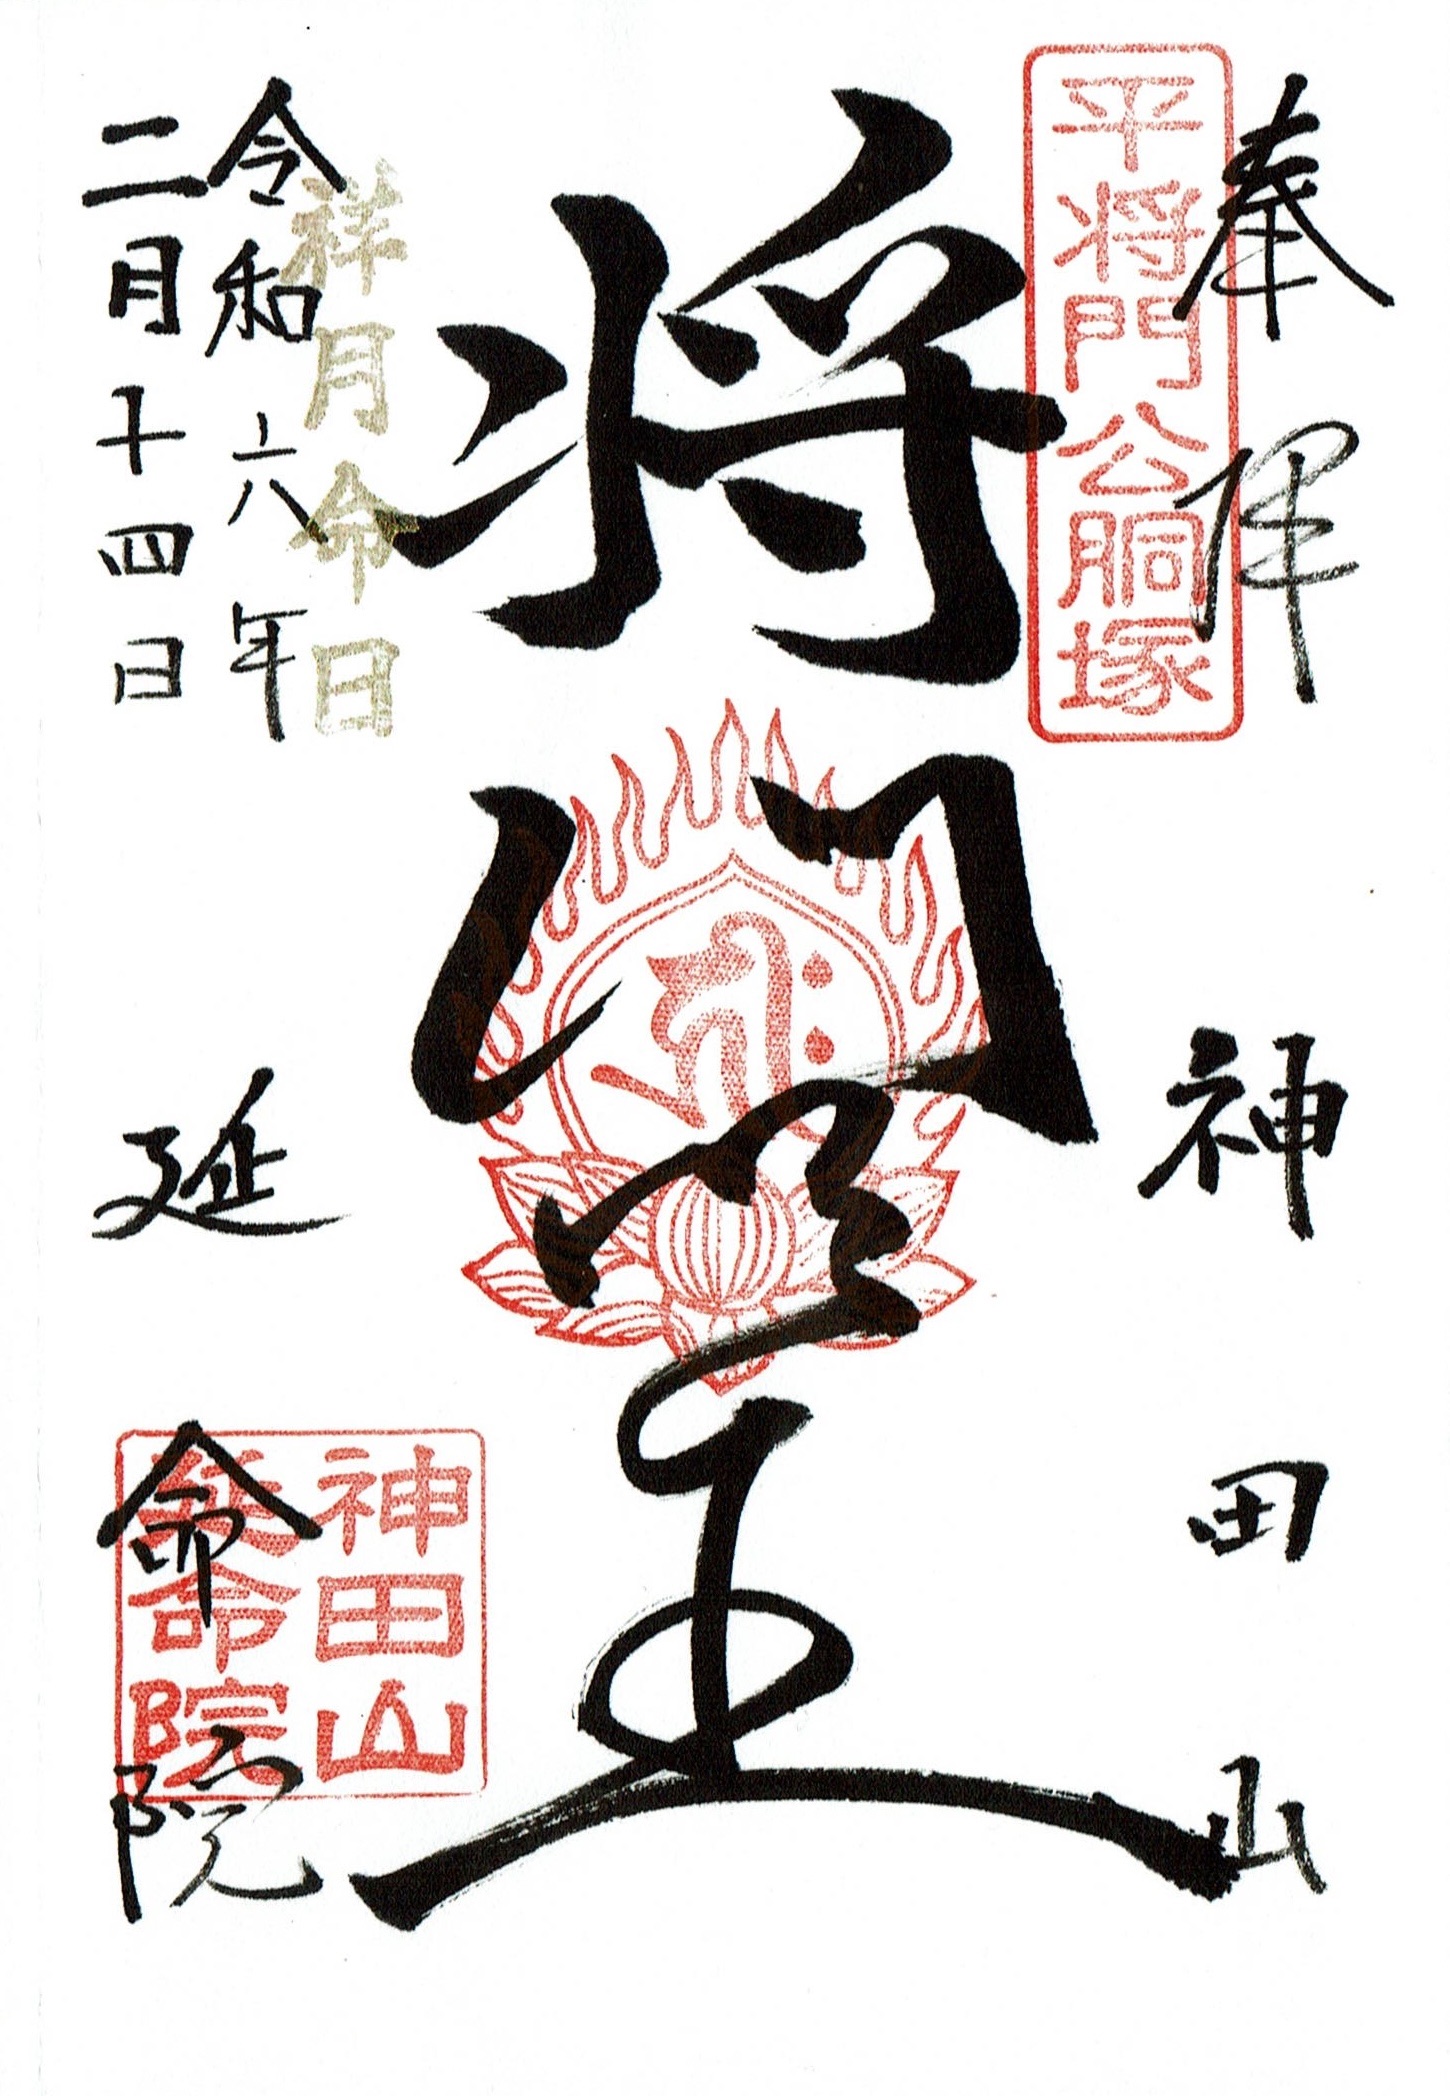 奉拝
神田山
平将門公胴塚
将門堂
祥月命日
令和六年
二月十四日
延命院
神田山
命院